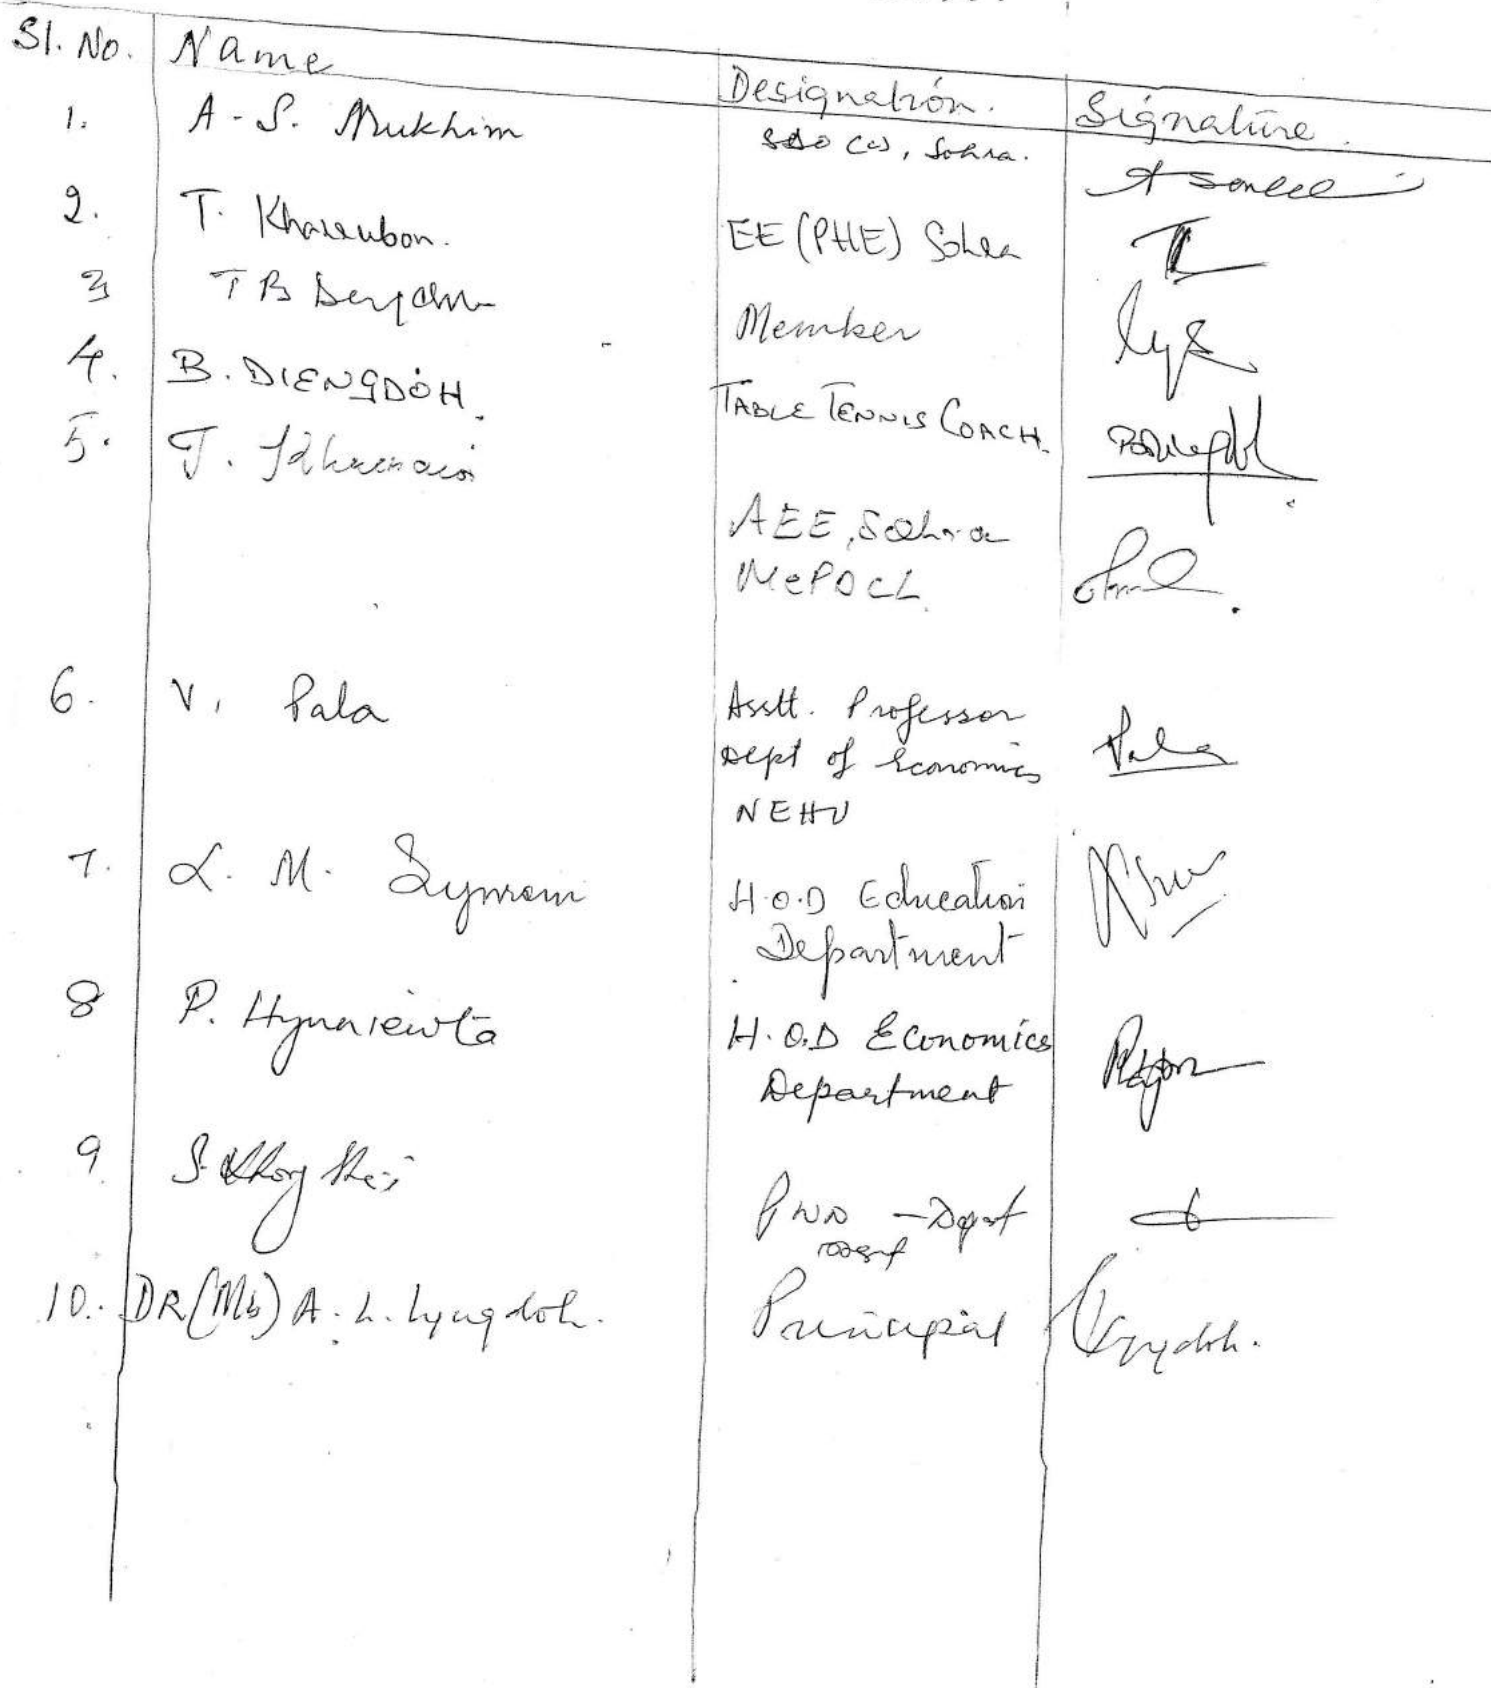 Sl. No. Name Designation. Signature.
1. A-S. Mukhim SDO (C), Sohra.
2. T. EE (PHE) Sohra
3 T B Member
4. B. DIENGDOH. TABLE TENNIS COACH.
5. J.
AEE, Sohra
MePDCL.
6. V. Pala Asstt. Professor Pala
Dept of Economics
NEHU
7. L. M. Syiem H.O.D Education
Department
8 P. Hynniewta H.O.D Economics
Department
9 S. PWD - Dept
10. DR (Ms) A. L. Lyngdoh. Principal Lyngdoh.